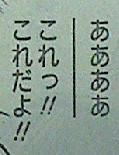 ああああ
これっ!!
これだよ!!